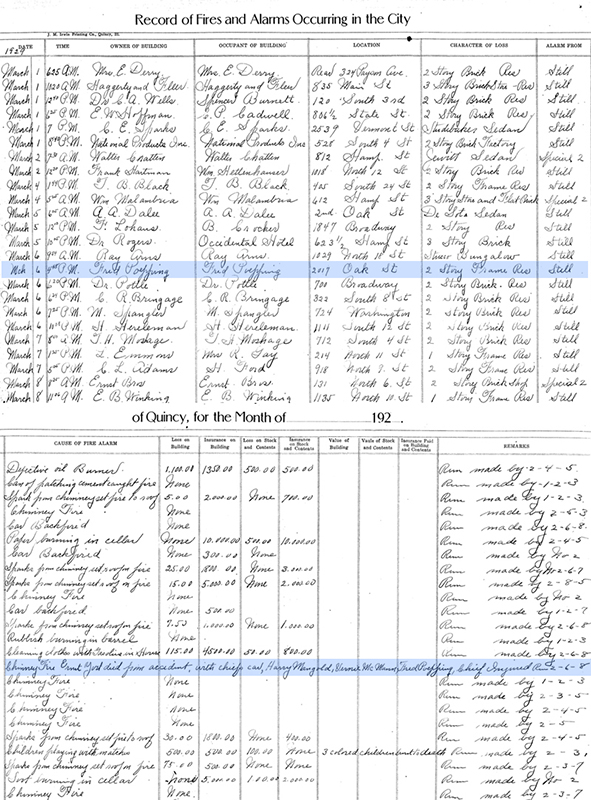 Record of Fires and Alarms Occurring in the City
J. M. Irwin Printing Co., Quincy, Ill.
1929
DATE TIME OWNER OF BUILDING OCCUPANT OF BUILDING LOCATION CHARACTER OF LOSS ALARM FROM
March 1 625 A.M. Mrs. E. Derry Mrs. E. Derry Rear 324 Payson Ave. 2 Story Brick Res Still
March 1 1020 A.M. Haggerty and Haggerty and 835 Main St 3 Story Brick Res Still
March 1 P.M. Dr. C. A. Wells Spencer Burnett 120 South 3rd 2 Story Brick Res Still
March 1 P.M. E. W. Hoffman E. P. Cadwell 806½ State St 2 Story Brick Res Still
March 1 7 P.M. C. E. Sparks C. E. Sparks 2539 Vermont St Studebaker Sedan Still
March 1 P.M. National Products Inc. National Products Inc 528 South 4 St 2 Story Brick Factory Still
March 2 A.M. Walter Chatten Walter Chatten 812 Hamp. St Jewett Sedan Special 2
March 2 P.M. Frank Hartman Wm Heldenhauser 1018 North 12 St 2 Story Brick Res Still
March 4 P.M. T. B. Black T. B. Black 405 South 24 St 2 Story Frame Res Still
March 4 A.M. Wm Malambra Wm Malambra 612 Hamp St 3 Story and Flat Brick Special 2
March 5 A.M. A. A. Dalee A. A. Dalee 2nd Oak St De Soto Sedan Still
March 5 P.M. F. Lohaus B. Crocker 1847 Broadway 2 Story Res Still
March 5 P.M. Dr. Rogers Occidental Hotel 623½ Hamp St 3 Story Brick Still
March 6 A.M. Ray Arns Ray Arns 1029 North 18 St Stucco Bungalow Still
Mch 6 P.M. Fred Poepping Fred Poepping 2017 Oak St 2 Story Frame Res Still
March 6 P.M. Dr. Pottle Dr. Pottle 700 Broadway 2 Story Brick Res Still
March 6 P.M. C. R. Bringage C. R. Bringage 322 South 8 St 2 Story Brick Res Still
March 6 P.M. M. Spangler M. Spangler 724 Washington 2 Story Brick Res Still
March 6 P.M. H. Hereleman H. Hereleman 1111 South 12 St 2 Story Brick Res Still
March 7 A.M. T. H. Moshage T. H. Moshage 712 South 4 St 2 Story Brick Res Still
March 7 P.M. L. Emmons Mrs R. Tay 214 North 11 St 1 Story Frame Res Still
March 7 P.M. C. L. Adams H. Ford 918 North 9 St 2 Story Frame Res Still
March 8 A.M. Ernest Bros Ernest Bros. 131 North 6 St 2 Story Brick Shop Special 2
March 8 A.M. E. B. Winking E. B. Winking 1135 North 10 St 1 Story Frame Res Still
of Quincy, for the Month of 192 .
CAUSE OF FIRE ALARM Loss on Building Insurance on Building Loss on Stock and Contents Insurance on Stock and Contents Value of Building Vauls of Stock and Contents Insurance Paid on Building and Contents REMARKS
Defective oil Burner 1,100.00 1350.00 500.00 500.00 Run made by 2-4-5.
Can of patching cement caught fire None Run made by 1-2-3
Spark from chimney set fire to roof 5.00 2.000.00 None 700.00 Run made by 1-2-3.
Chimney Fire None Run made by 2-5-3
Car Backfired None Run made by 2-6-8.
Paper burning in cellar None 10.000.00 500.00 10.000.00 Run made by 2-4-5
Car Backfired None 300.00 None Run made by No 2
Sparks from chimney set roof on fire 25.00 800 00 None 3.000.00 Run made by No 2-6-7
Sparks from chimney set roof on fire 15.00 5.000.00 None 2.000.00 Run made by 2-8-5
Chimney Fire None Run made by No 2
Car backfired None 500.00 Run made by 1-2-7
Sparks from chimney set roof on fire 7.53 1.000.00 None 1.000.00 Run made by 2-6-8
Rubbish burning in barrel None Run made by 1-2-3
Cleaning clothes with Gasoline in House 115.00 4500.00 50.00 800.00 Run made by 2-6-8
Chimney Fire Ernst Gost died from accident, with chiefs car, Harry Mengold, Verner Mc Munn, Fred Poepping, Chief Injured Run 2-6-8
Chimney Fire None Run made by 1-2-3
Chimney Fire None Run made by 2-3-5
Chimney Fire None Run made by 2-4-5
Chimney Fire None Run made by 2-5
Sparks from chimney set fire to roof 30.00 1800.00 None 400.00 Run made by 2-4-5
Children playing with matches 500.00 500.00 100.00 None 3 colored children burnt to death Run made by 2-3,
Sparks from chimney set roof on fire 75.00 500.00 None None Run made by 2-3-7
Soot burning in cellar None 5.000.00 100.00 2.000.00 Run made by No 2
Chimney Fire None. Run made by 2-3-7